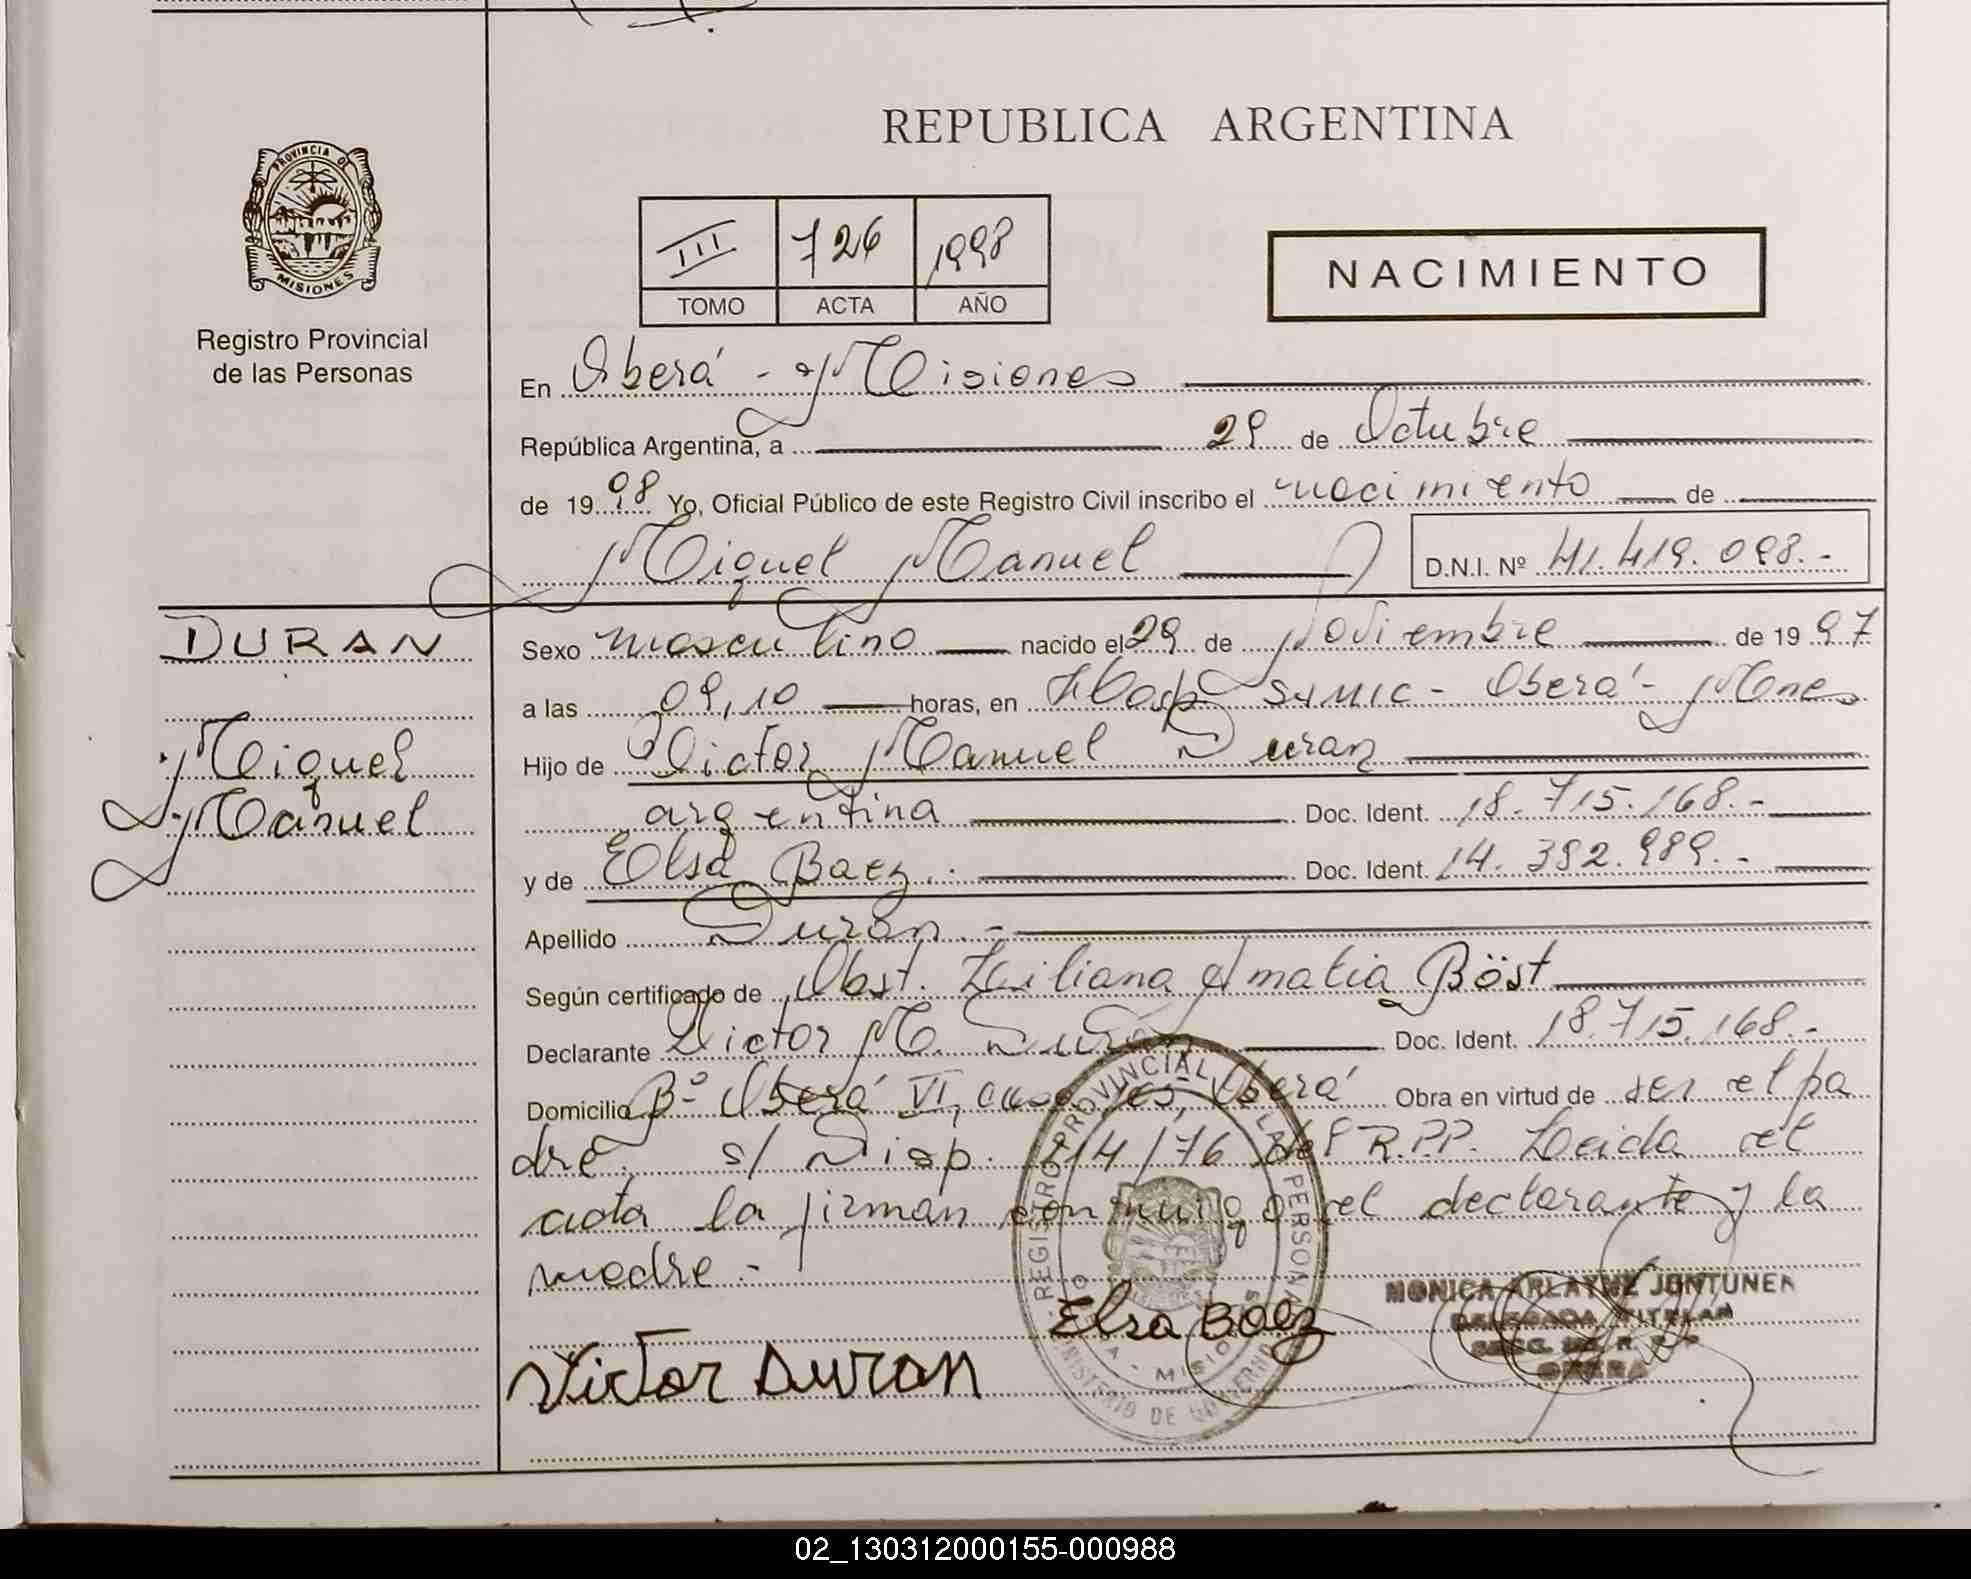 REPUBLICA ARGENTINA
PROVINCIA DE
MISIONES
Registro Provincial
de las Personas
III 726 1998
TOMO ACTA AÑO
NACIMIENTO
En Oberá - Misiones
República Argentina, a 29 de Octubre
de 19 98 Yo, Oficial Público de este Registro Civil inscribo el nacimiento de
Miguel Manuel D.N.I. Nº 41.419.098.-
DURAN
Miguel
Manuel
Sexo masculino nacido el 29 de Noviembre de 19 97
a las 09,10 horas, en Hosp SAMIC - Oberá - Mnes
Hijo de Victor Manuel Duran
argentina Doc. Ident. 18.715.168.-
y de Elsa Baez.- Doc. Ident. 14.392.989.-
Apellido Duran.-
Según certificado de Obst. Liliana Amalia Böst
Declarante Victor M. Duran Doc. Ident. 18.715.168.-
Domicilio Bº Oberá VI, casa Oberá Obra en virtud de ser el pa
dre, s/ Disp. 14/76 del R.P.P. Leida el
acta la firman conmigo el declarante y la
madre.-
REGISTRO PROVINCIAL DE LAS PERSONAS
MISIONES
MINISTERIO DE GOBIERNO
Elsa Baez
Victor Duran
MONICA ARLAYNE JONTUNEN
DELEGADA TITULAR
DELEG. DEL R.P.P.
OBERA
02_130312000155-000988